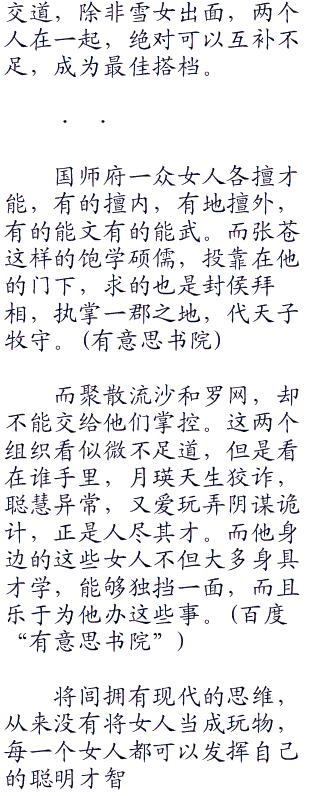 交道，除非雪女出面，两个
人在一起，绝对可以互补不
足，成为最佳搭档。
· ·
国师府一众女人各擅才
能，有的擅内，有地擅外，
有的能文有的能武。而张苍
这样的饱学硕儒，投靠在他
的门下，求的也是封侯拜
相，执掌一郡之地，代天子
牧守。(有意思书院)
而聚散流沙和罗网，却
不能交给他们掌控。这两个
组织看似微不足道，但是看
在谁手里，月瑛天生狡诈，
聪慧异常，又爱玩弄阴谋诡
计，正是人尽其才。而他身
边的这些女人不但大多身具
才学，能够独挡一面，而且
乐于为他办这些事。(百度
“有意思书院”)
将闾拥有现代的思维，
从来没有将女人当成玩物，
每一个女人都可以发挥自己
的聪明才智